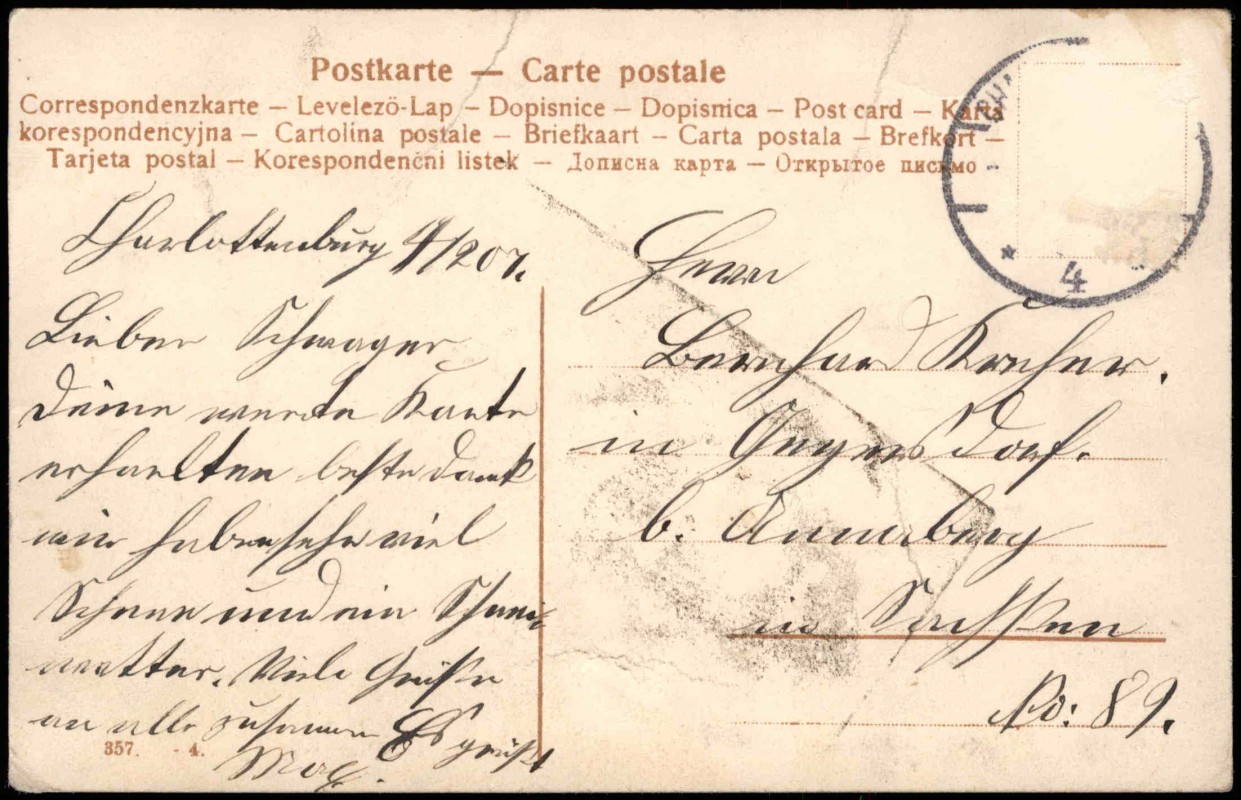 Postkarte — Carte postale
Correspondenzkarte – Levelezö-Lap – Dopisnice – Dopisnica – Post card – Karta
korespondencyjna – Cartolina postale – Briefkaart – Carta postala – Brefkort –
Tarjeta postal – Korespondenčni listek – Дописна карта – Открытое письмо
4
Charlottenburg 4/2 07.
Lieber Schwager
Deine werte Karte
erhalten besten Dank
wir haben sehr viel
Schnee und ein
Viele Grüße
an alle zusammen Es grüßt
Max.
357. - 4.
Herrn
Bernhard
in Geyersdorf.
b. Annaberg
in Sachsen
No: 89.